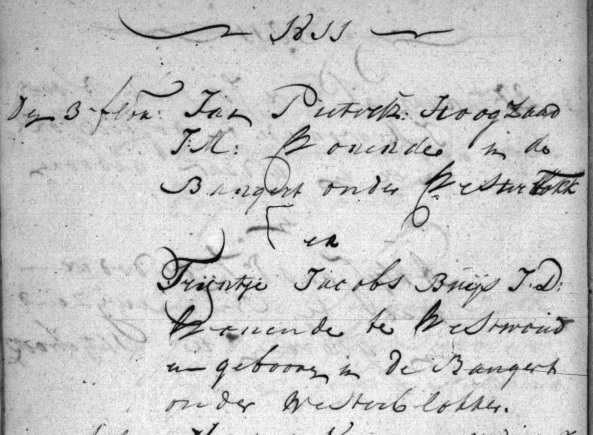 1811
Den 3 febr: Jan Pieters: Hoogzaad
J:M: Wonende in de
Bangert onder Westerblokk
en
Trijntje Jacobs Buijs J:D:
Wonende te Westwoud
en gebooren in de Bangert
onder Westerblokker.